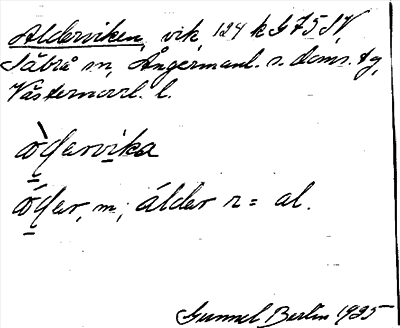 Alderviken, vik, 124 k S75 SV
Säbrå sn, Ångermanl. s. doms. tg,
Västernorrl. l.
ò̱ɖarvi̱ka
ó̱ɖar, m; álder n = al.
Gunnel Berlin 1925